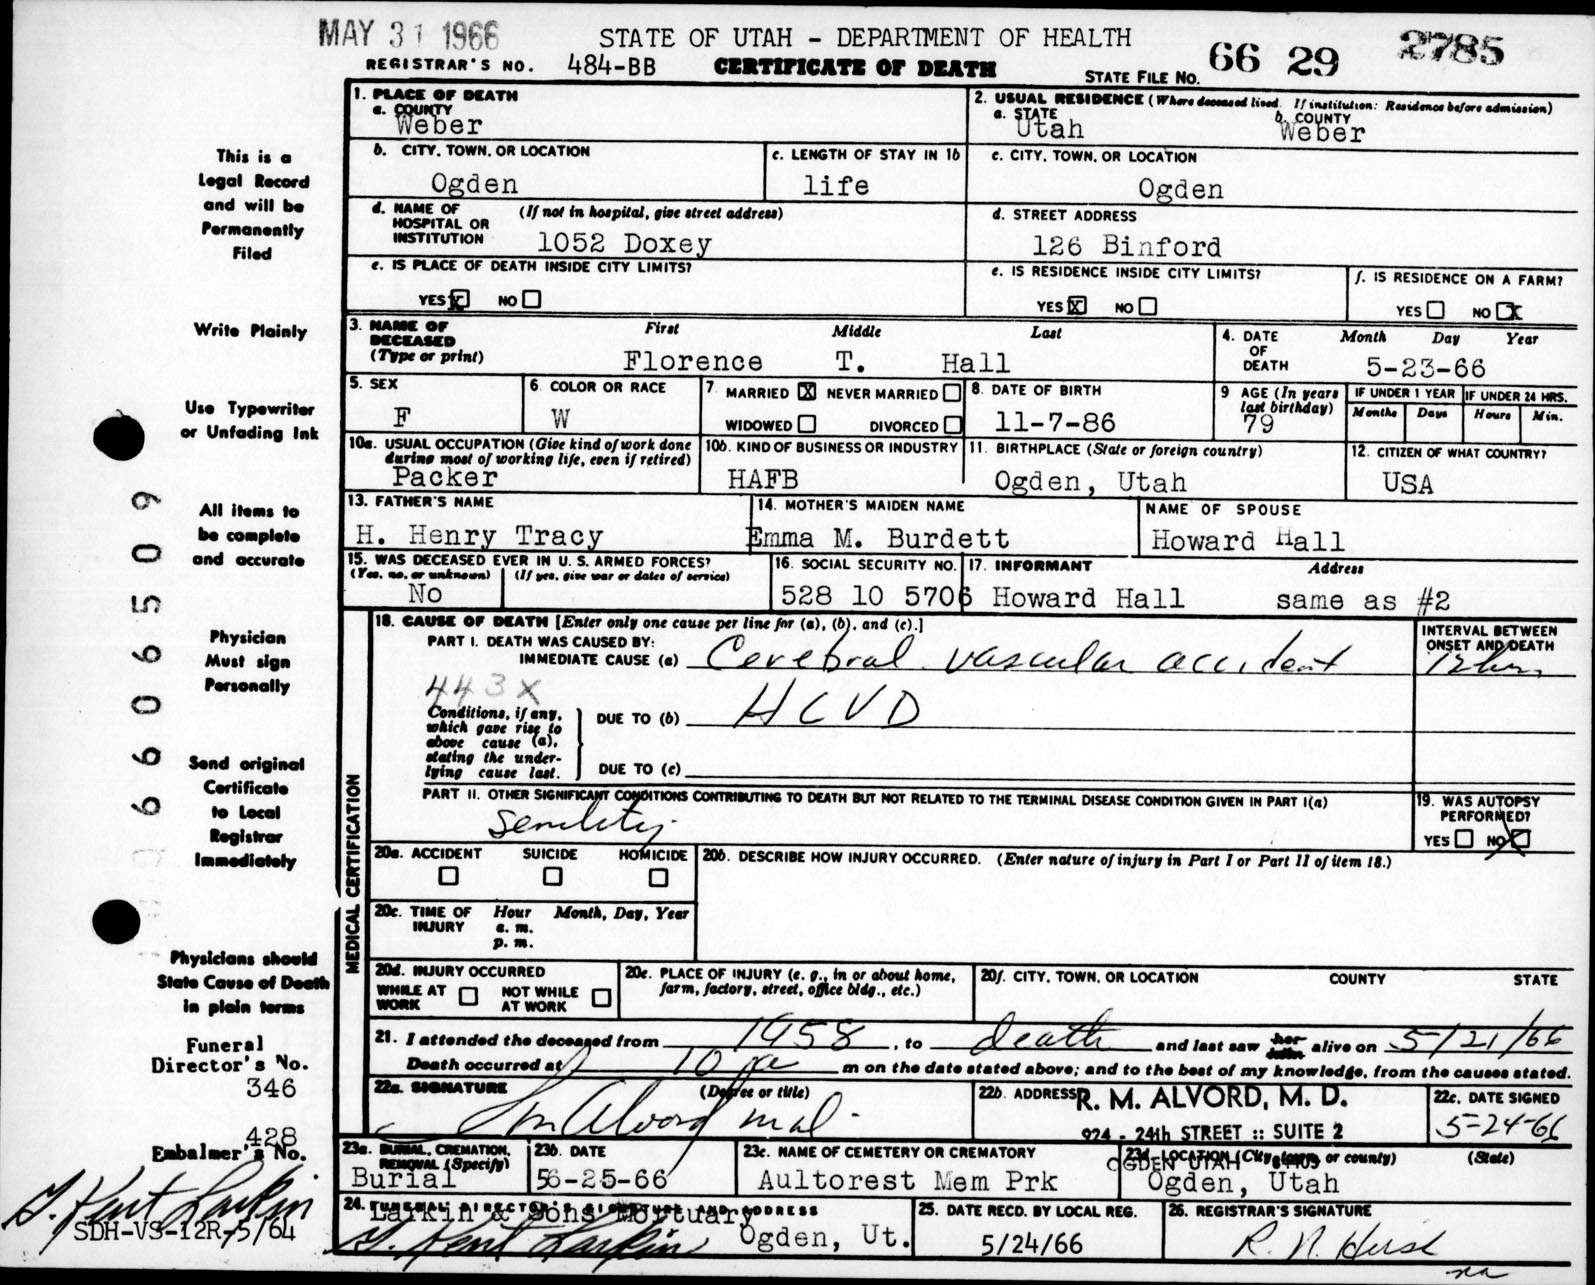 MAY 31 1966
STATE OF UTAH - DEPARTMENT OF HEALTH
REGISTRAR'S NO. 484-BB CERTIFICATE OF DEATH STATE FILE NO. 66 29 2785
1. PLACE OF DEATH
a. COUNTY
Weber
2. USUAL RESIDENCE (Where deceased lived. If institution: Residence before admission)
a. STATE b. COUNTY
Utah Weber
b. CITY, TOWN, OR LOCATION
Ogden
c. LENGTH OF STAY IN 1b
life
c. CITY, TOWN, OR LOCATION
Ogden
d. NAME OF HOSPITAL OR INSTITUTION (If not in hospital, give street address)
1052 Doxey
d. STREET ADDRESS
126 Binford
e. IS PLACE OF DEATH INSIDE CITY LIMITS?
YES X NO
e. IS RESIDENCE INSIDE CITY LIMITS?
YES X NO
f. IS RESIDENCE ON A FARM?
YES NO X
3. NAME OF DECEASED (Type or print) First Middle Last
Florence T. Hall
4. DATE OF DEATH Month Day Year
5-23-66
5. SEX
F
6. COLOR OR RACE
W
7. MARRIED X NEVER MARRIED
WIDOWED DIVORCED
8. DATE OF BIRTH
11-7-86
9 AGE (In years last birthday)
79
IF UNDER 1 YEAR IF UNDER 24 HRS.
Months Days Hours Min.
10a. USUAL OCCUPATION (Give kind of work done during most of working life, even if retired)
Packer
10b. KIND OF BUSINESS OR INDUSTRY
HAFB
11. BIRTHPLACE (State or foreign country)
Ogden, Utah
12. CITIZEN OF WHAT COUNTRY?
USA
13. FATHER'S NAME
H. Henry Tracy
14. MOTHER'S MAIDEN NAME
Emma M. Burdett
NAME OF SPOUSE
Howard Hall
15. WAS DECEASED EVER IN U. S. ARMED FORCES?
(Yes, no, or unknown) (If yes, give war or dates of service)
No
16. SOCIAL SECURITY NO.
528 10 5706
17. INFORMANT Address
Howard Hall same as #2
18. CAUSE OF DEATH [Enter only one cause per line for (a), (b), and (c).]
PART I. DEATH WAS CAUSED BY:
IMMEDIATE CAUSE (a) Cerebral vascular accident
INTERVAL BETWEEN ONSET AND DEATH
443X
Conditions, if any, which gave rise to above cause (a), stating the underlying cause last.
DUE TO (b) HCVD
DUE TO (c)
PART II. OTHER SIGNIFICANT CONDITIONS CONTRIBUTING TO DEATH BUT NOT RELATED TO THE TERMINAL DISEASE CONDITION GIVEN IN PART I(a)
Senility
19. WAS AUTOPSY PERFORMED?
YES NO X
MEDICAL CERTIFICATION
20a. ACCIDENT SUICIDE HOMICIDE
20b. DESCRIBE HOW INJURY OCCURRED. (Enter nature of injury in Part I or Part II of item 18.)
20c. TIME OF INJURY Hour Month, Day, Year
a. m.
p. m.
20d. INJURY OCCURRED
WHILE AT WORK NOT WHILE AT WORK
20e. PLACE OF INJURY (e. g., in or about home, farm, factory, street, office bldg., etc.)
20f. CITY, TOWN, OR LOCATION COUNTY STATE
21. I attended the deceased from 1958, to death and last saw her him alive on 5/21/66
Death occurred at 10 a m on the date stated above; and to the best of my knowledge, from the causes stated.
22a. SIGNATURE (Degree or title)
Rm Alvord md.
22b. ADDRESS
R. M. ALVORD, M. D.
924 - 24th STREET :: SUITE 2
OGDEN UTAH 84403
22c. DATE SIGNED
5-24-66
23a. BURIAL, CREMATION, REMOVAL (Specify)
Burial
23b. DATE
56-25-66
23c. NAME OF CEMETERY OR CREMATORY
Aultorest Mem Prk
23d. LOCATION (City, town, or county) (State)
Ogden, Utah
24. FUNERAL DIRECTOR'S SIGNATURE AND ADDRESS
Larkin & Sons Mortuary
G. Kent Larkin Ogden, Ut.
25. DATE RECD. BY LOCAL REG.
5/24/66
26. REGISTRAR'S SIGNATURE
This is a
Legal Record
and will be
Permanently
Filed
Write Plainly
Use Typewriter
or Unfading Ink
All items to
be complete
and accurate
Physician
Must sign
Personally
Send original
Certificate
to Local
Registrar
Immediately
Physicians should
State Cause of Death
in plain terms
Funeral
Director's No.
346
428
Embalmer's No.
G. Kent Larkin
SDH-VS-12R-5/64
6606509